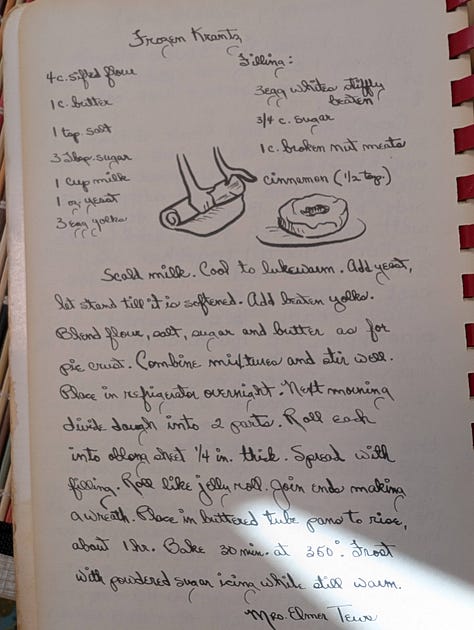 Frozen Krantz
4 c. sifted flour
1 c. butter
1 tsp. salt
3 Tbsp. sugar
1 cup milk
1 oz. yeast
3 egg yolks
Filling:
3 egg whites stiffly
beaten
3/4 c. sugar
1 c. broken nut meats
cinnamon (1/2 tsp.)
Scald milk. Cool to lukewarm. Add yeast,
let stand till it is softened. Add beaten yolks.
Blend flour, salt, sugar and butter as for
pie crust. Combine mixtures and stir well.
Place in refrigerator overnight. Next morning
divide dough into 2 parts. Roll each
into oblong sheet 1/4 in. thick. Spread with
filling. Roll like jelly roll. Join ends making
a wreath. Place in buttered tube pans to rise,
about 1 hr. Bake 30 min. at 350°. Frost
with powdered sugar icing while still warm.
Mrs. Elmer